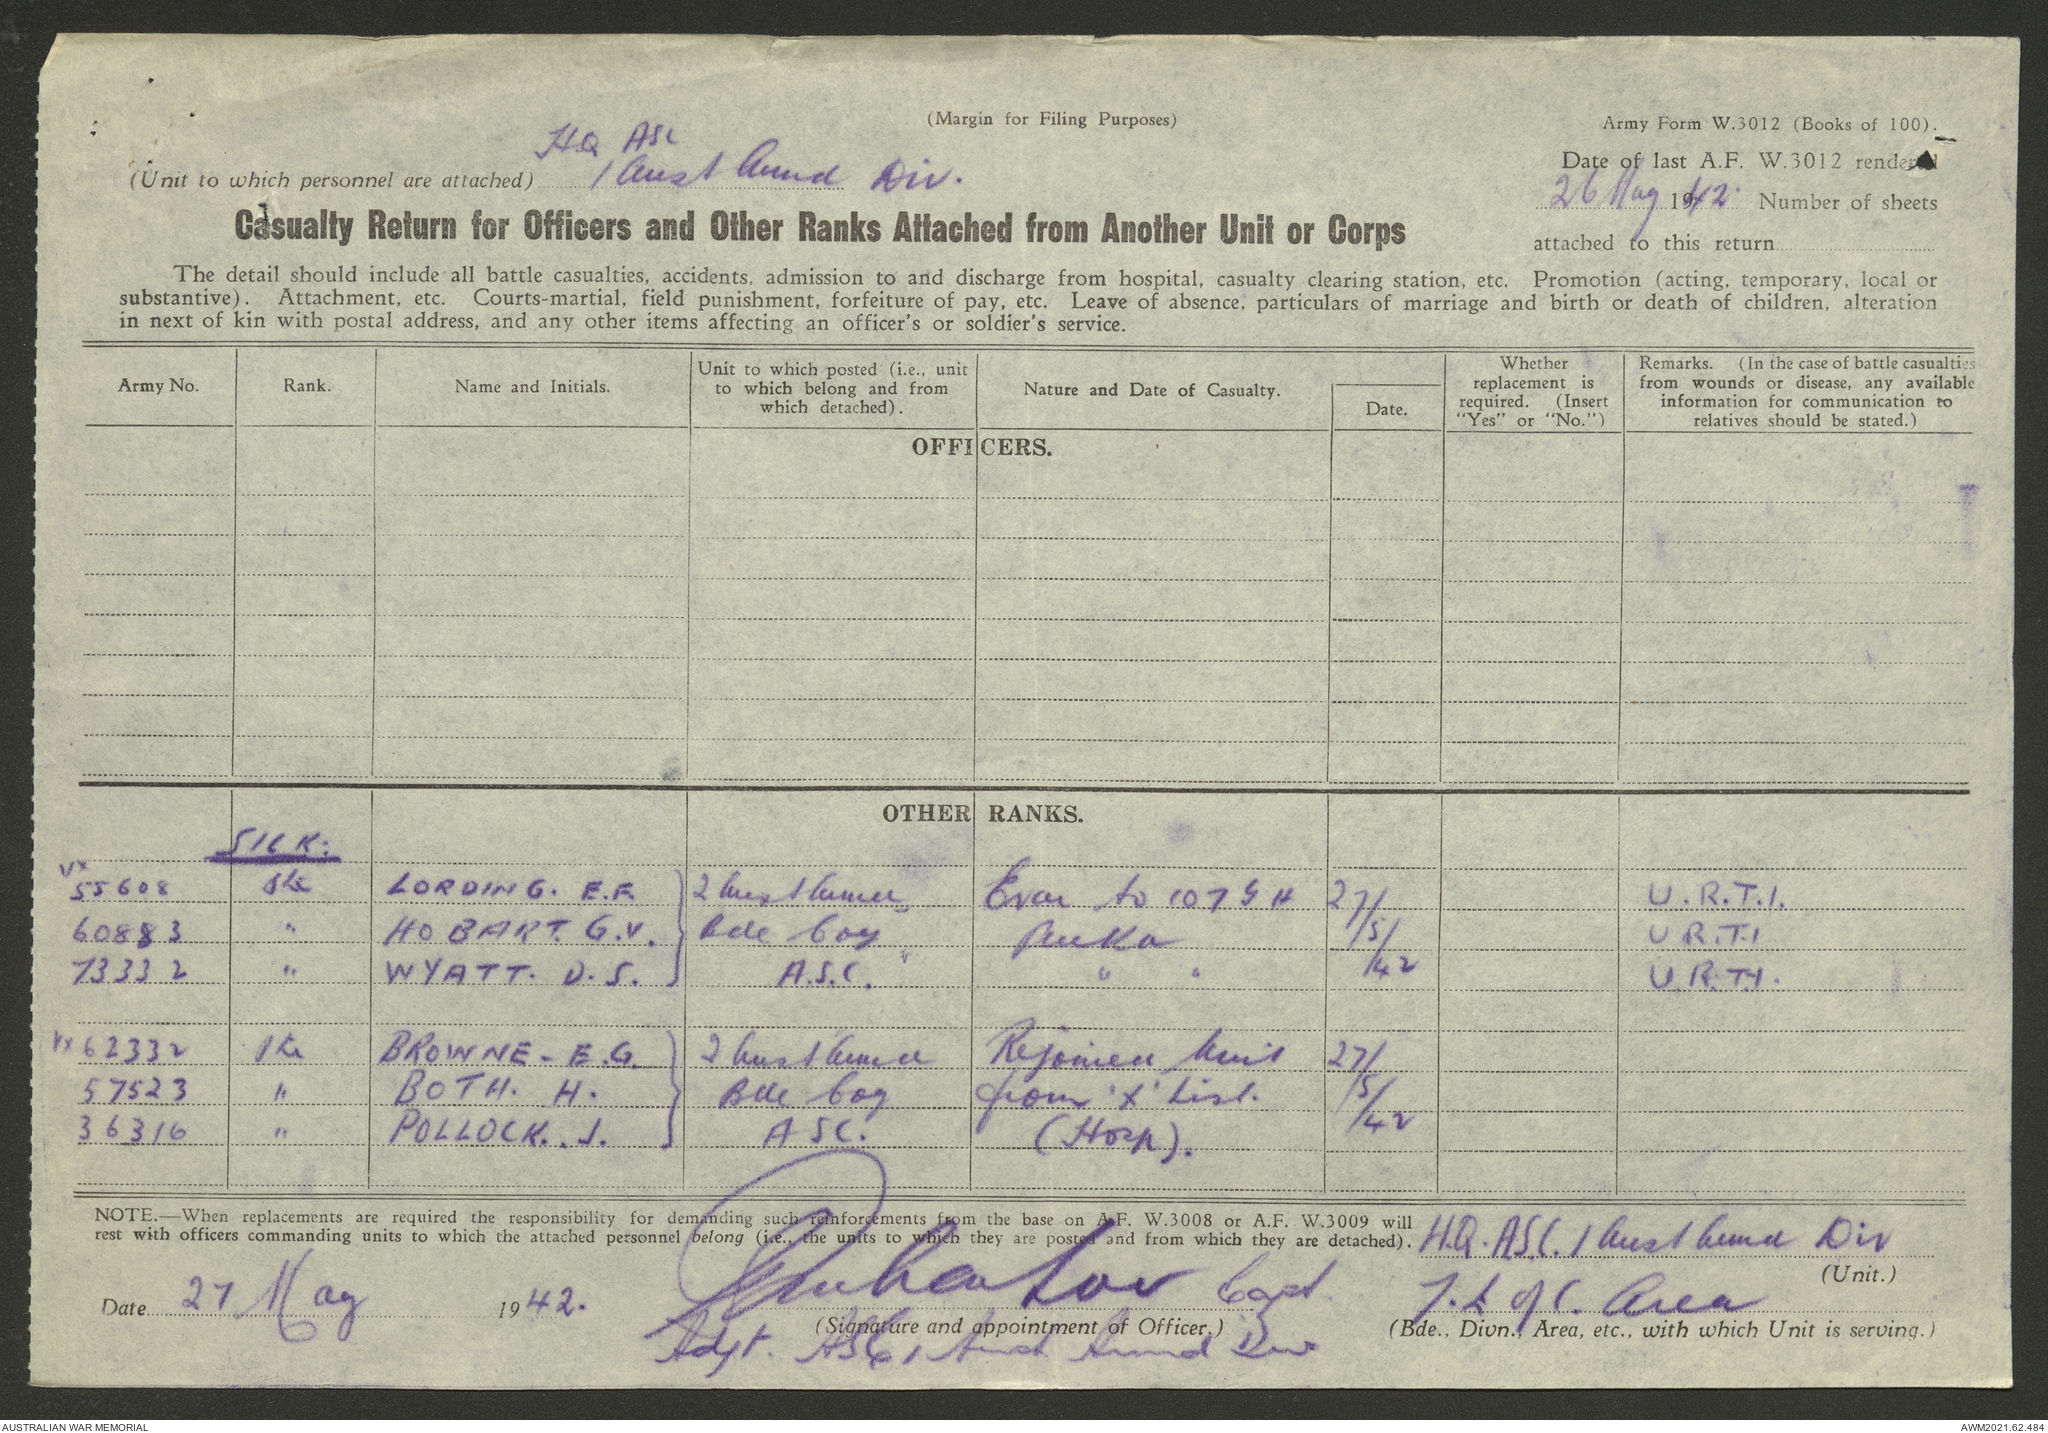 (Margin for Filing Purposes)
Army Form W.3012 (Books of 100).
H.Q ASC
(Unit to which personnel are attached) 1 Aust Armd Div.
Date of last A.F. W.3012 rendered
26 May 1942. Number of sheets
attached to this return
Casualty Return for Officers and Other Ranks Attached from Another Unit or Corps
The detail should include all battle casualties, accidents, admission to and discharge from hospital, casualty clearing station, etc. Promotion (acting, temporary, local or
substantive). Attachment, etc. Courts-martial, field punishment, forfeiture of pay, etc. Leave of absence, particulars of marriage and birth or death of children, alteration
in next of kin with postal address, and any other items affecting an officer's or soldier's service.
Army No. Rank. Name and Initials. Unit to which posted (i.e., unit to which belong and from which detached). Nature and Date of Casualty. Date. Whether replacement is required. (Insert "Yes" or "No.") Remarks. (In the case of battle casualties from wounds or disease, any available information for communication to relatives should be stated.)
OFFICERS.
OTHER RANKS.
SICK.
VX 55608 Pte LORDING. E.F. 2 Aust Armd Evac to 107 G H 27/ U.R.T.I.
60883 " HOBART. G.V. Bde Coy Puka /5/ U.R.T.I
73332 " WYATT. D.S. A.S.C. " " /42 U.R.T.I.
VX 62332 Pte BROWNE - E.G. 2 Aust Armd Rejoined Unit 27/
57523 " BOTH. H. Bde Coy from 'X' List. /5/
36316 " POLLOCK. J. ASC. (Hosp). /42
NOTE.—When replacements are required the responsibility for demanding such reinforcements from the base on A.F. W.3008 or A.F. W.3009 will
rest with officers commanding units to which the attached personnel belong (i.e., the units to which they are posted and from which they are detached).
H.Q. ASC. 1 Aust Armd Div
(Unit.)
Date 27 May 1942.
Capt.
(Signature and appointment of Officer.)
Adjt. ASC 1 Aust Armd Div
L of C. Area
(Bde., Divn., Area, etc., with which Unit is serving.)
AUSTRALIAN WAR MEMORIAL
AWM2021.62.484